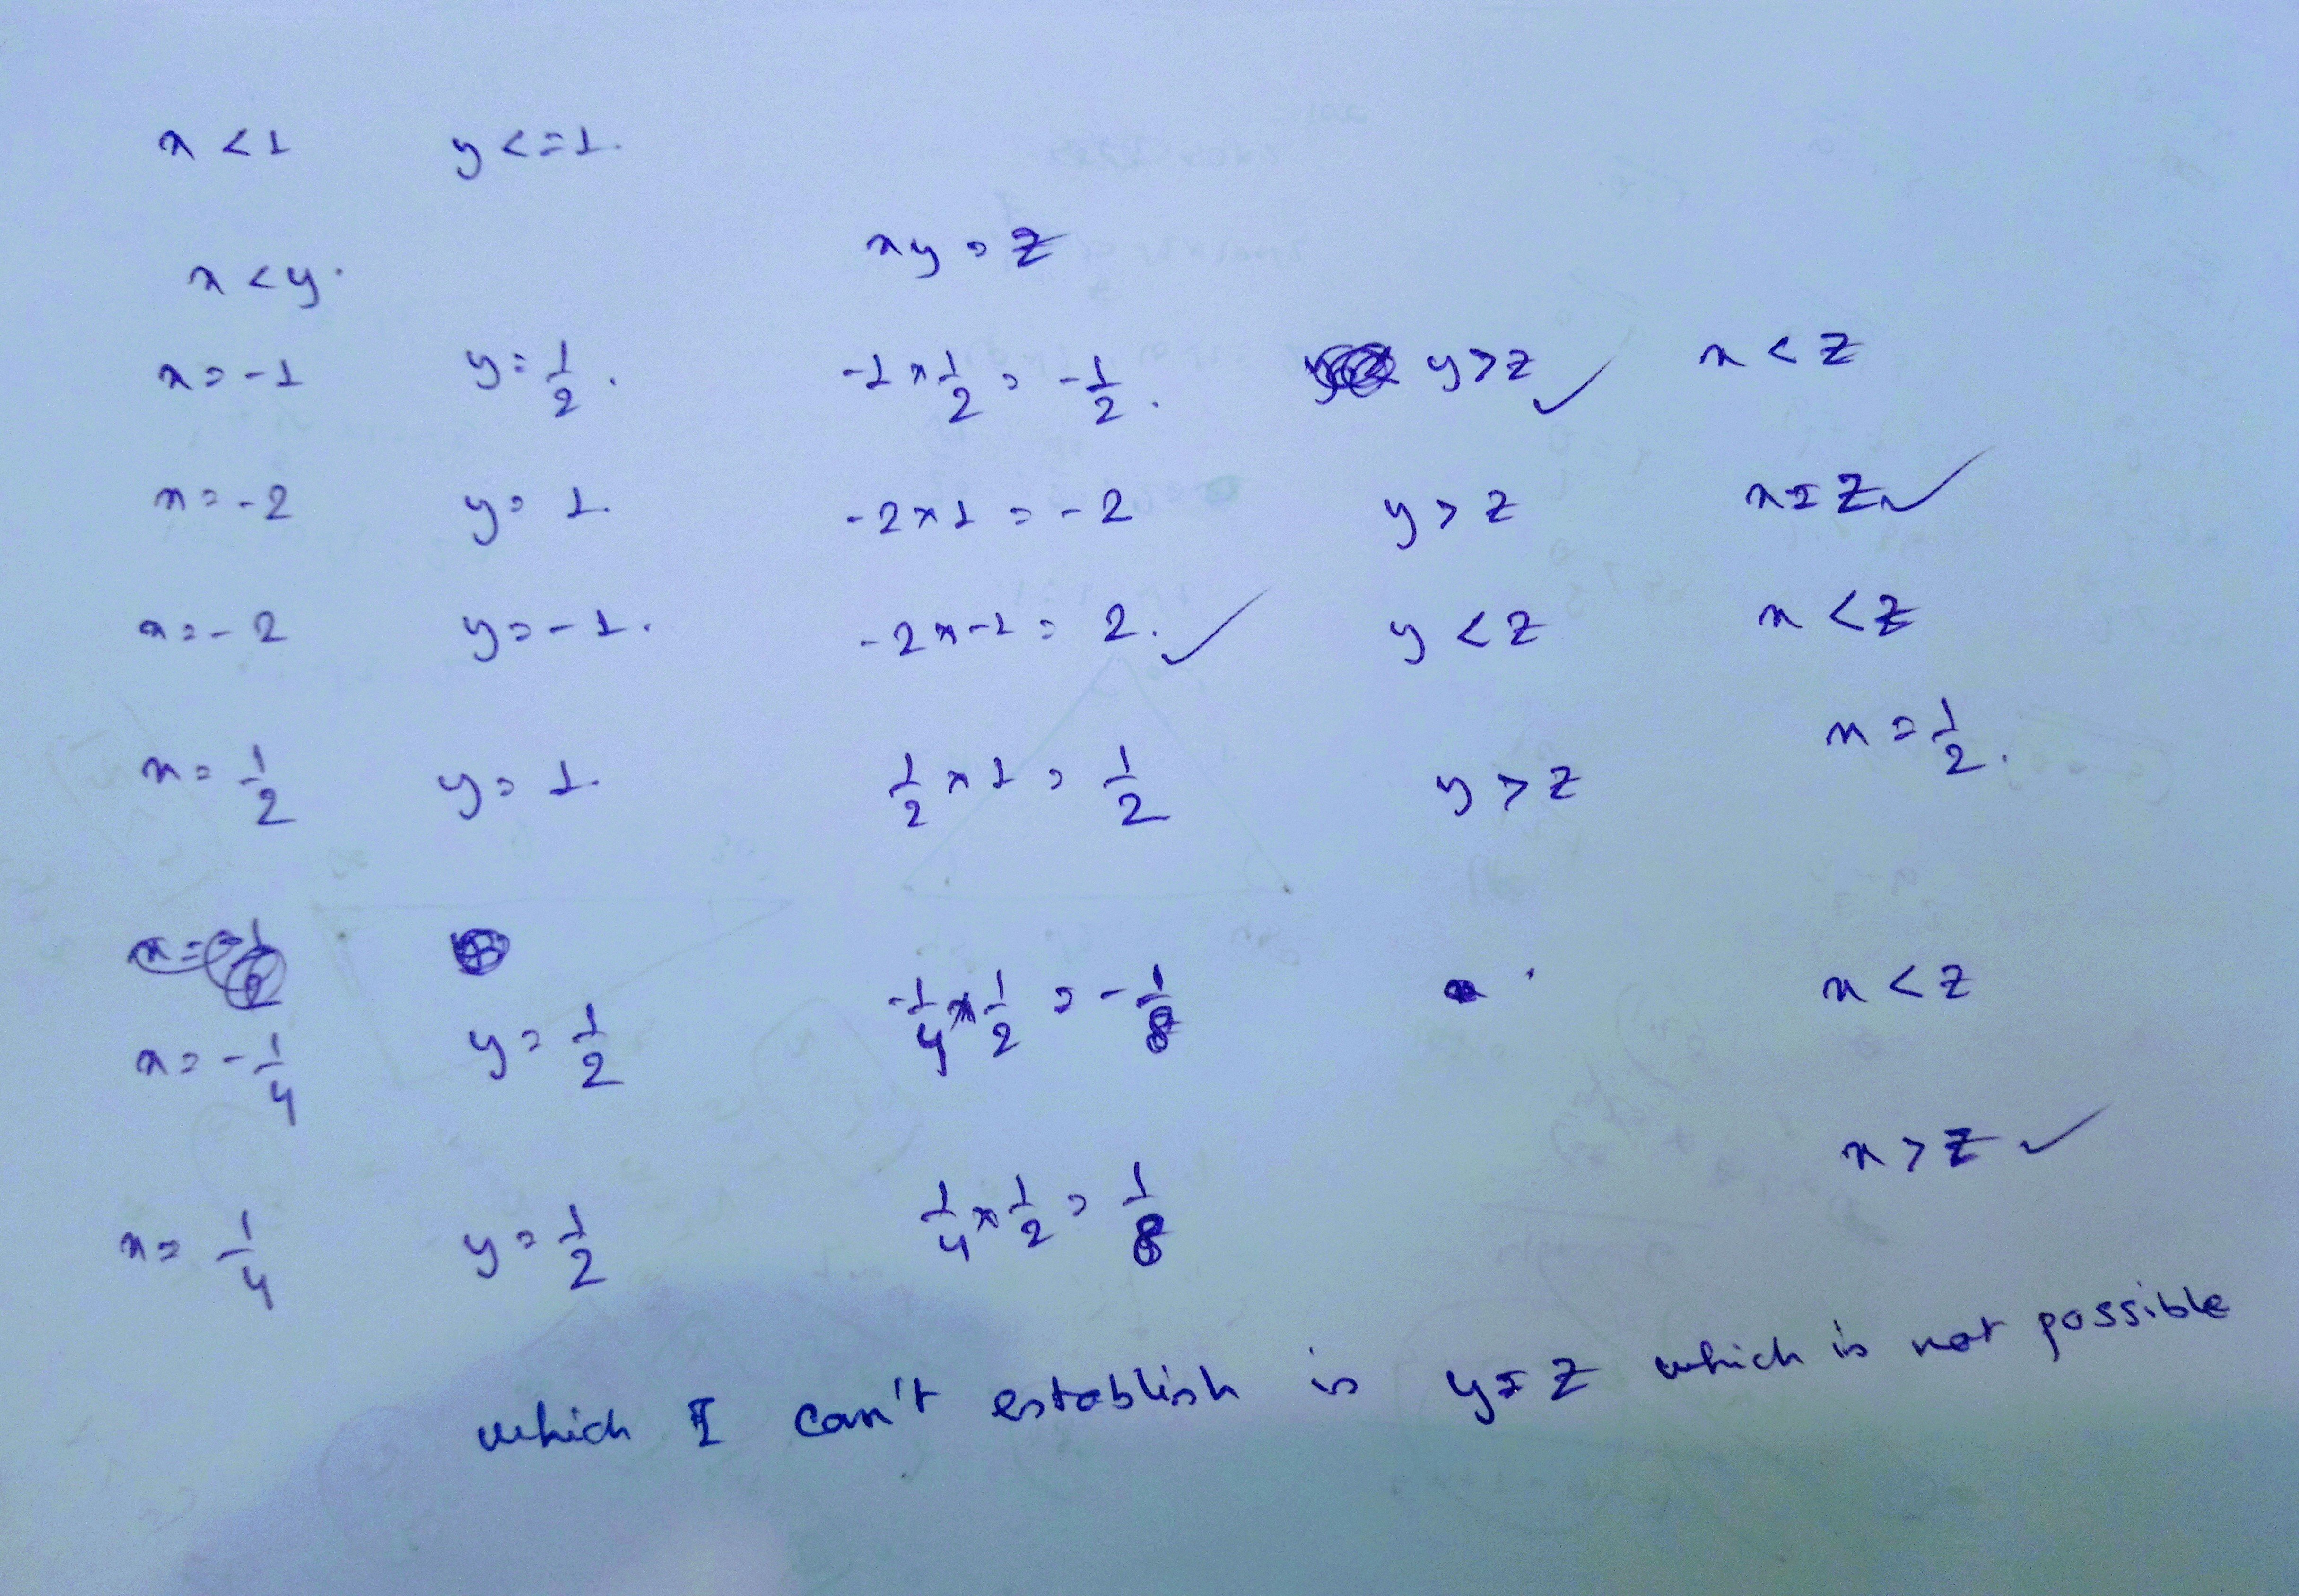 x < 1 y <= 1.
xy = z
x < y.
x = -1 y = 1/2. -1 × 1/2 = -1/2. y > z ✓ x < z
x = -2 y = 1. -2 × 1 = -2 y > z x = z ✓
x = -2 y = -1. -2 × -1 = 2. ✓ y < z x < z
x = 1/2 y = 1. 1/2 × 1 = 1/2 y > z x = 1/2.
x = -1/4 y = 1/2 -1/4 × 1/2 = -1/8 x < z
x = 1/4 y = 1/2 1/4 × 1/2 = 1/8 x > z ✓
which I can't establish is y = z which is not possible